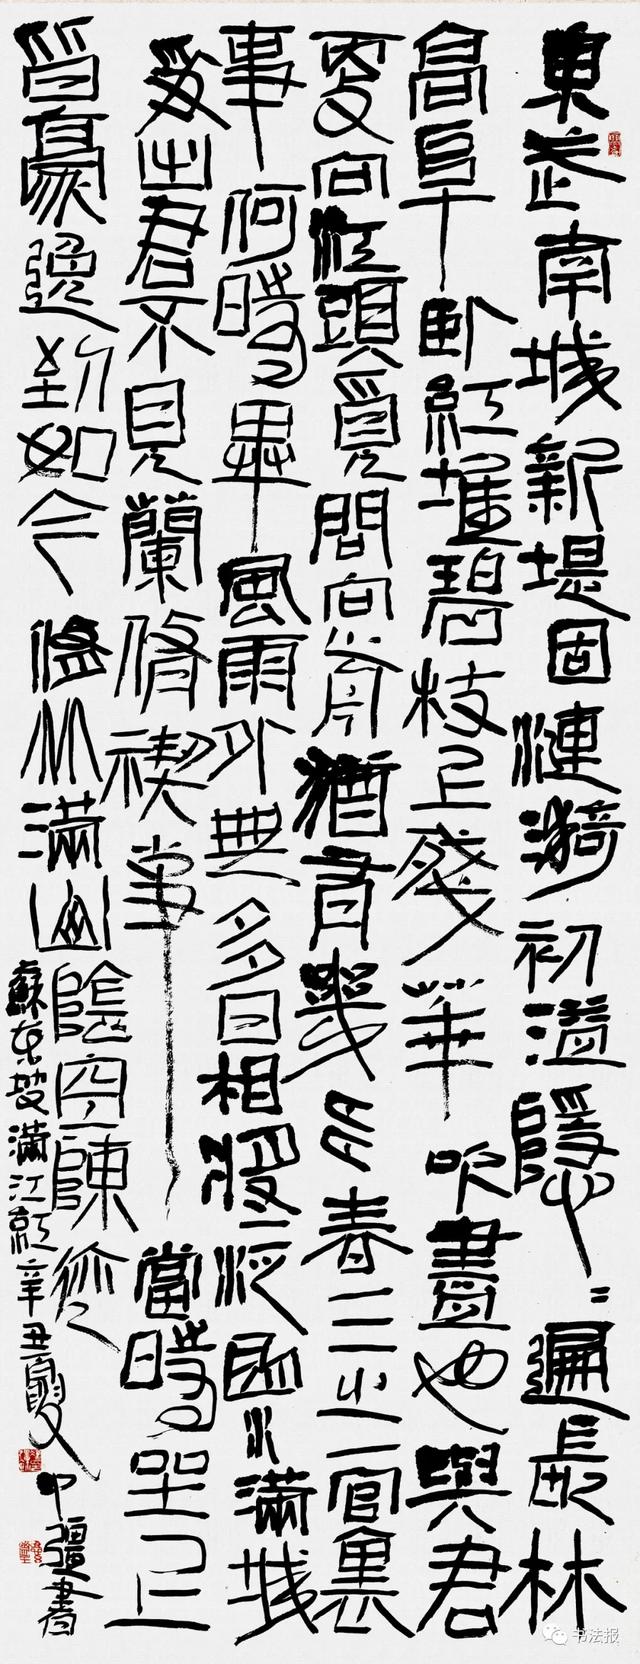 東武南城新堤固漣漪初溢隱〻遍長林
高阜卧紅堆碧枝上殘華吹盡也與君
更向江頭覓問向前猶有幾多春三之一官裏
事何時畢風雨外無多日相將泛曲水滿城
爭出君不見蘭脩禊事當時坐上
皆豪逸到如今脩竹滿山陰空陳迹
蘇東坡滿江紅辛丑夏中彊書
书法报